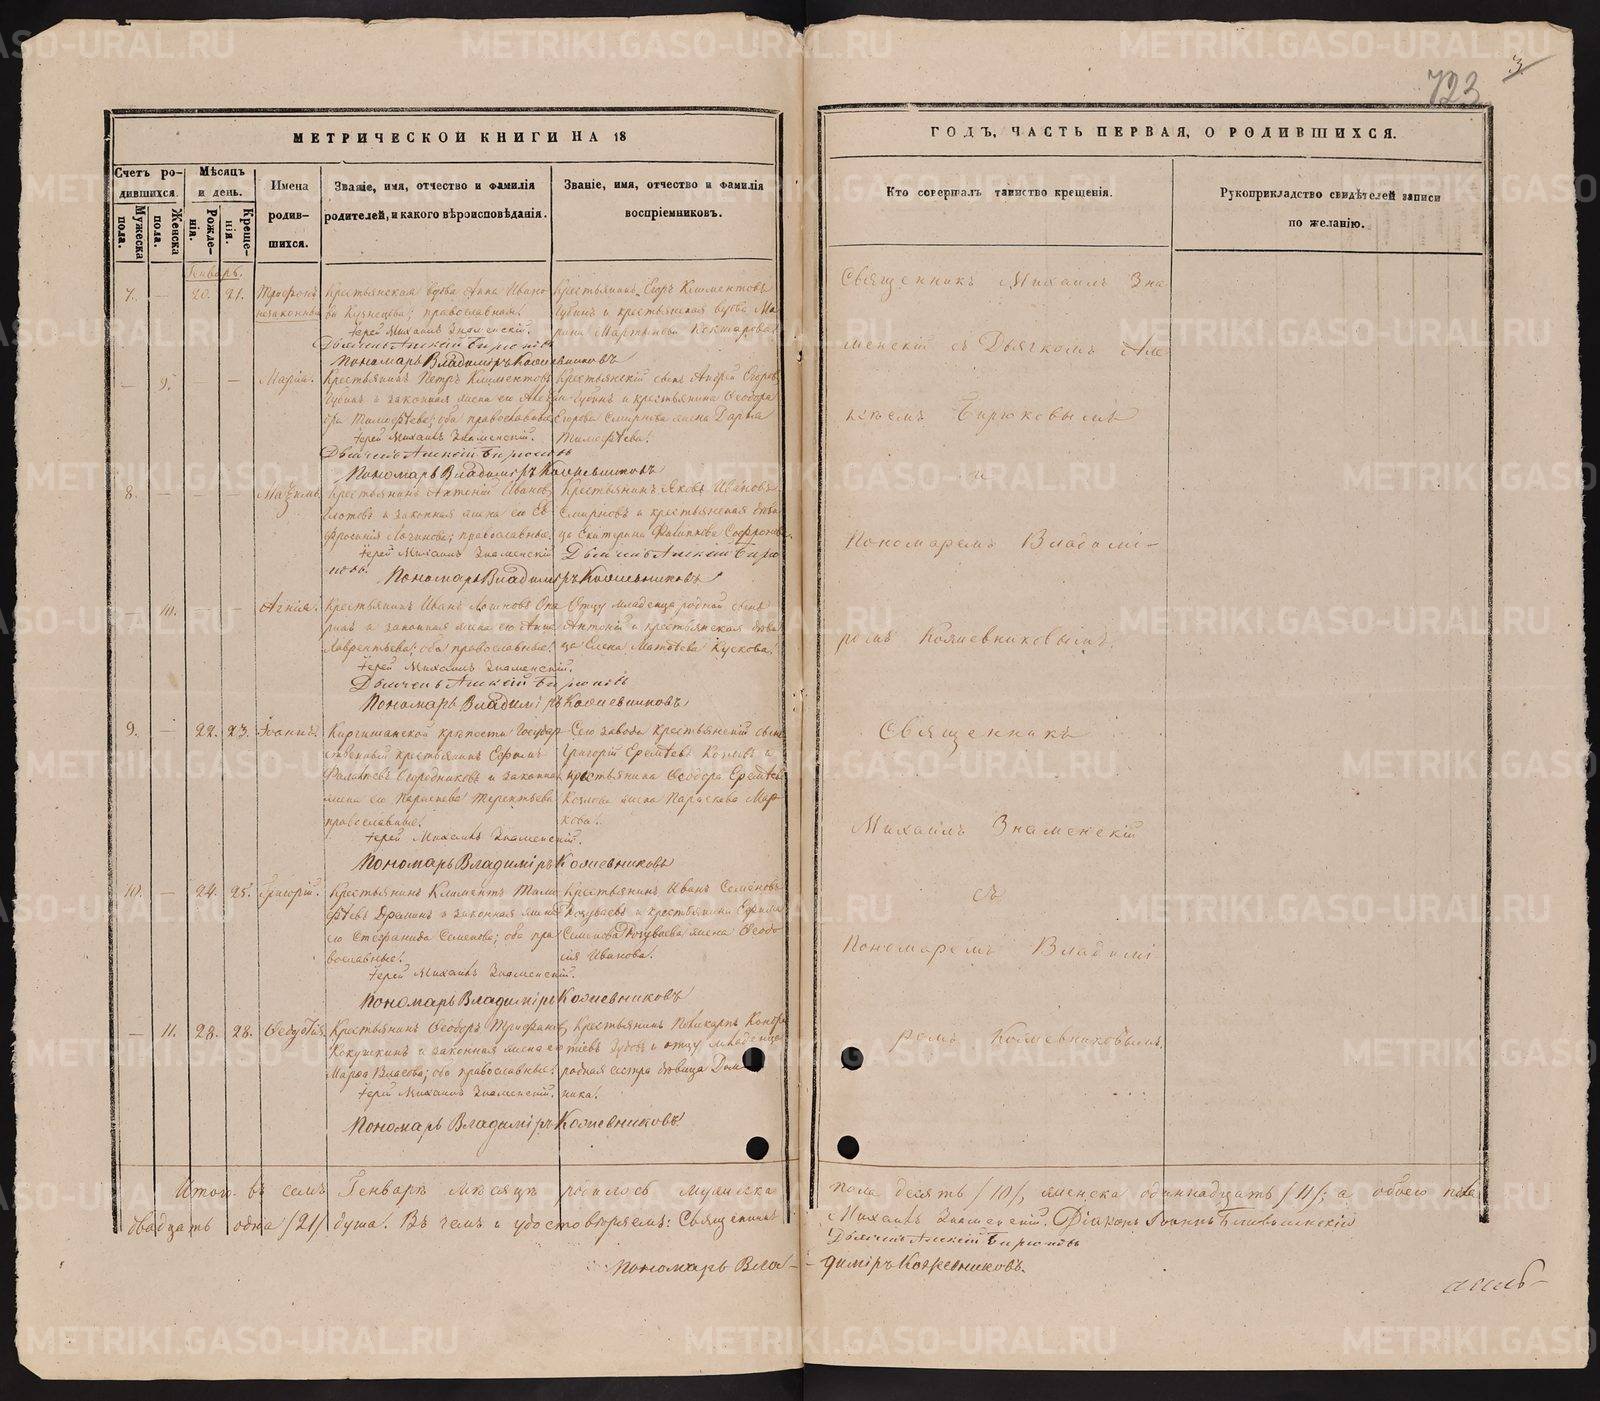 723
3
МЕТРИЧЕСКОЙ КНИГИ НА 18
ГОДЪ, ЧАСТЬ ПЕРВАЯ, О РОДИВШИХСЯ.
Счетъ ро-
дившихся.
Мужеска
пола.
Женска
пола.
Мѣсяцъ
и день.
Рожде-
нія.
Креще-
нія.
Имена
родив-
шихся.
Званіе, имя, отчество и фамилія
родителей, и какого вѣроисповѣданія.
Званіе, имя, отчество и фамилія
воспріемниковъ.
Кто совершалъ таинство крещенія.
Рукоприкладство свидѣтелей записи
по желанію.
Январь.
7. — 20. 21. Трифонъ
незаконный
Крестьянская вдова Анна Ивано
ва Кузнецова; православная.
Іерей Михаилъ Знаменскій.
Дьячекъ Алексій Бирюковъ
Пономарь Владиміръ Кожевниковъ
Крестьянинъ Егоръ Климентовъ
Губинъ и крестьянская вдова Ма
рина Мартынова
— 9. — — Марія.
Крестьянинъ Петръ Климентовъ
Губинъ и законная жена его Алексан
дра Тимофѣева; оба православные
Іерей Михаилъ Знаменскій.
Дьячекъ Алексій Бирюковъ
Пономарь Владиміръ Кожевниковъ
Крестьянскій сынъ Андрей Егоровъ
Губинъ и крестьянина Ѳеодора
Егорова Смирнова жена Дарья
Тимофѣева.
8. — — — Максимъ.
Крестьянинъ Антоній Ивановъ
и законная жена его Ев
фросинія Логинова; православные.
Іерей Михаилъ Знаменскій
Дьячекъ Алексій Бирю
ковъ.
Пономарь Владиміръ Кожевниковъ
Крестьянинъ Яковъ Ивановъ
Смирновъ и крестьянская дѣви
ца Екатерина Филиппова
— 10. — — Агнія.
Крестьянинъ Иванъ Логиновъ
и законная жена его Анна
Лаврентьева; оба православные.
Іерей Михаилъ Знаменскій.
Дьячекъ Алексій Бирюковъ
Пономарь Владиміръ Кожевниковъ
Отцу младенца родной сынъ
Антоній и крестьянская дѣви
ца Елена Матвѣева Кускова.
9. — 22. 23. Іоаннъ.
Киргишанской крѣпости Государ
ственный крестьянинъ Ефремъ
и законная
жена его Параскева Терентьева
православные.
Іерей Михаилъ Знаменскій.
Пономарь Владиміръ Кожевниковъ
Сего завода крестьянскій сынъ
Григорій Еремѣевъ Козловъ и
крестьянина Ѳеодора Еремѣева
Козлова жена Параскева Мар
кова.
10. — 24. 25. Григорій.
Крестьянинъ Климентъ Тимо
фѣевъ и законная жена
его Стефанида Семенова; оба пра
вославные.
Іерей Михаилъ Знаменскій.
Пономарь Владиміръ Кожевниковъ
Крестьянинъ Иванъ Семеновъ
и крестьянина Ефима
Семенова жена Ѳеодо
сія Иванова.
— 11. 28. 28. Ѳедотія
Крестьянинъ Ѳеодоръ Трифановъ
Кокушкинъ и законная жена его
Марѳа Власова; оба православные.
Іерей Михаилъ Знаменскій.
Пономарь Владиміръ Кожевниковъ
Крестьянинъ Поликарпъ Кондра
тіевъ Зубовъ и отцу младенца
родная сестра дѣвица Дом
ника.
Священникъ Михаилъ Зна
менскій съ Дьячкомъ Але
ксѣемъ Бирюковымъ
и
Пономаремъ Владимі-
ромъ Кожевниковымъ.
Священникъ
Михаилъ Знаменскій
съ
Пономаремъ Владимі
ромъ Кожевниковымъ.
Итого въ семъ Генварѣ мѣсяцѣ родилось мужеска пола десять /10/, женска одиннадцать /11/; а обоего пола
двадцать одна /21/ душа. Въ чемъ и удостовѣряемъ: Священникъ Михаилъ Знаменскій. Діаконъ Іоаннъ
Дьячекъ Алексій Бирюковъ
Пономарь Владиміръ Кожевниковъ.